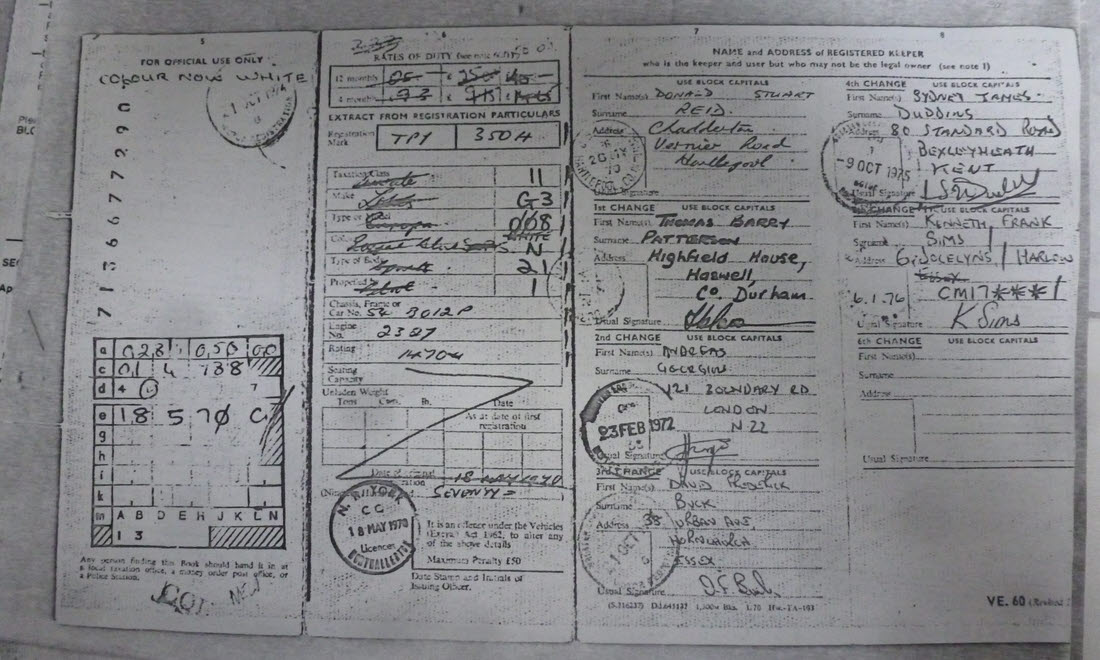 5
FOR OFFICIAL USE ONLY
COLOUR NOW WHITE
7156677290
a 0,2,8 0,5,0 0,0
c 0,1 4 7,8,8
d 4 0 7
e 1,8 5 7,0 C
g
h
i
k
m A B D E H J K L N
1 3
Any person finding this Book should hand it in at
a local taxation office, a money order post office, or
a Police Station.
6
RATES OF DUTY (see note 6/7)
12 months £ 25
4 months £
EXTRACT FROM REGISTRATION PARTICULARS
Registration
Mark TPY 350H
Taxation Class Private 11
Make Lotus G3
Type or Model Europa 068
WHITE
N
Type of Body Sports 21
Propelled 1
Chassis, Frame or
Car No. 54 3012P
Engine
No. 2327
Rating 1470H
Seating
Capacity
Unladen Weight
Tons Cwt. lb. Date
As at date of first
registration
Date of original
registration 18 MAY 1970
SEVENTY =
N.R. YORK
C C
18 MAY 1970
Licences
NORTHALLERTON
It is an offence under the Vehicles
(Excise) Act 1962, to alter any
of the above details
Maximum Penalty £50
Date Stamp and Initials of
Issuing Officer.
7
8
NAME and ADDRESS of REGISTERED KEEPER
who is the keeper and user but who may not be the legal owner (see note 1)
USE BLOCK CAPITALS
First Name(s) DONALD STUART
Surname REID
Address Chadderton
Vernier Road
Hartlepool
Usual Signature
1st CHANGE USE BLOCK CAPITALS
First Name(s) THOMAS BARRY
Surname PATTERSON
Address Highfield House,
Haswell,
Co. Durham.
Usual Signature
2nd CHANGE USE BLOCK CAPITALS
First Name(s) ANDREAS
Surname GEORGIOU
121 BOUNDARY RD
LONDON
N 22
23 FEB 1972
Usual Signature
3rd CHANGE USE BLOCK CAPITALS
First Name(s) DAVID FREDERICK
Surname BUCK
Address 38 URBAN AVE,
HORNCHURCH
ESSEX
Usual Signature D.F. Buck
4th CHANGE USE BLOCK CAPITALS
First Name(s) SYDNEY JAMES
Surname DUDDINS
Address 80 STANDARD ROAD
BEXLEYHEATH
KENT
-9 OCT 1975
Usual Signature
5th CHANGE USE BLOCK CAPITALS
First Name(s) KENNETH FRANK
Surname SIMS
Address 6, JOCELYNS, HARLOW
ESSEX
CM17***
6.1.76
Usual Signature K Sims
6th CHANGE USE BLOCK CAPITALS
First Name(s)
Surname
Address
Usual Signature
VE. 60 (Revised